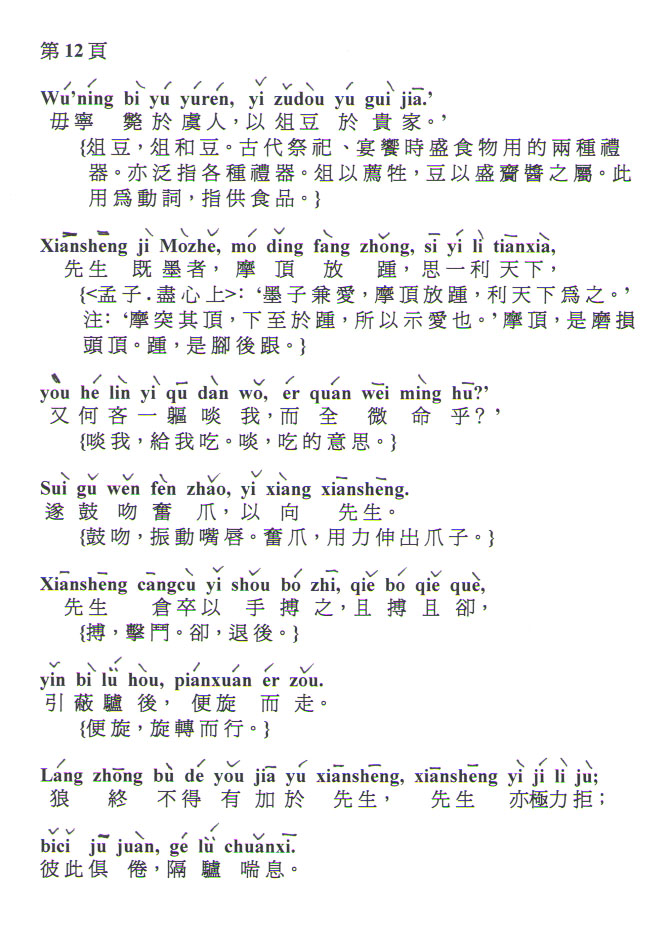 第12頁
Wú'nìng bì yú yúrén, yǐ zǔdòu yú guì jiā.'
毋寧 斃於虞人，以俎豆 於 貴 家。'
{俎豆，俎和豆。古代祭祀、宴饗時盛食物用的兩種禮
器。亦泛指各種禮器。俎以薦牲，豆以盛齎醬之屬。此
用爲動詞，指供食品。}
Xiānshēng jì Mòzhě, mó dǐng fàng zhǒng, sī yī lì tiānxià,
先生 既墨者，摩 頂 放 踵，思一利天下，
{<孟子.盡心上>：'墨子兼愛，摩頂放踵，利天下爲之。'
注：'摩突其頂，下至於踵，所以示愛也。'摩頂，是磨損
頭頂。踵，是腳後跟。}
yòu hé lìn yī qū dàn wǒ, ér quán wēi mìng hū?'
又何吝一軀啖 我，而 全 微 命乎？'
{啖我，給我吃。啖，吃的意思。}
Suì gǔ wěn fèn zhǎo, yǐ xiàng xiānshēng.
遂 鼓 吻 奮 爪，以 向 先生。
{鼓吻，振動嘴唇。奮爪，用力伸出爪子。}
Xiānshēng cāngcù yǐ shǒu bó zhī, qiě bó qiě què,
先生 倉卒以 手 搏 之，且 搏 且 卻，
{搏，擊鬥。卻，退後。}
yǐn bì lǘ hòu, piánxuán ér zǒu.
引 蔽 驢 後， 便旋 而 走。
{便旋，旋轉而行。}
Láng zhōng bù dé yǒu jiā yú xiānshēng, xiānshēng yì jí lì jù;
狼 終 不得 有 加於 先生， 先生 亦極力拒；
bǐcǐ jū juàn, gé lǘ chuǎnxī.
彼此俱 倦，隔 驢 喘息。